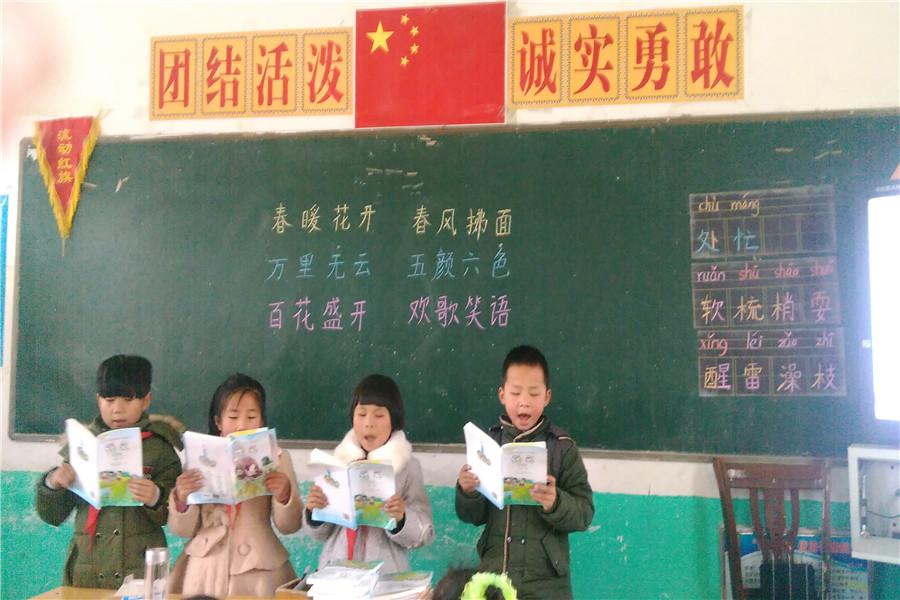 团结活泼
诚实勇敢
流动红旗
春暖花开 春风拂面
万里无云 五颜六色
百花盛开 欢歌笑语
chù máng
处忙
ruǎn shū shāo shuǎ
软梳梢耍
xǐng léi zǎo zhī
醒雷澡枝